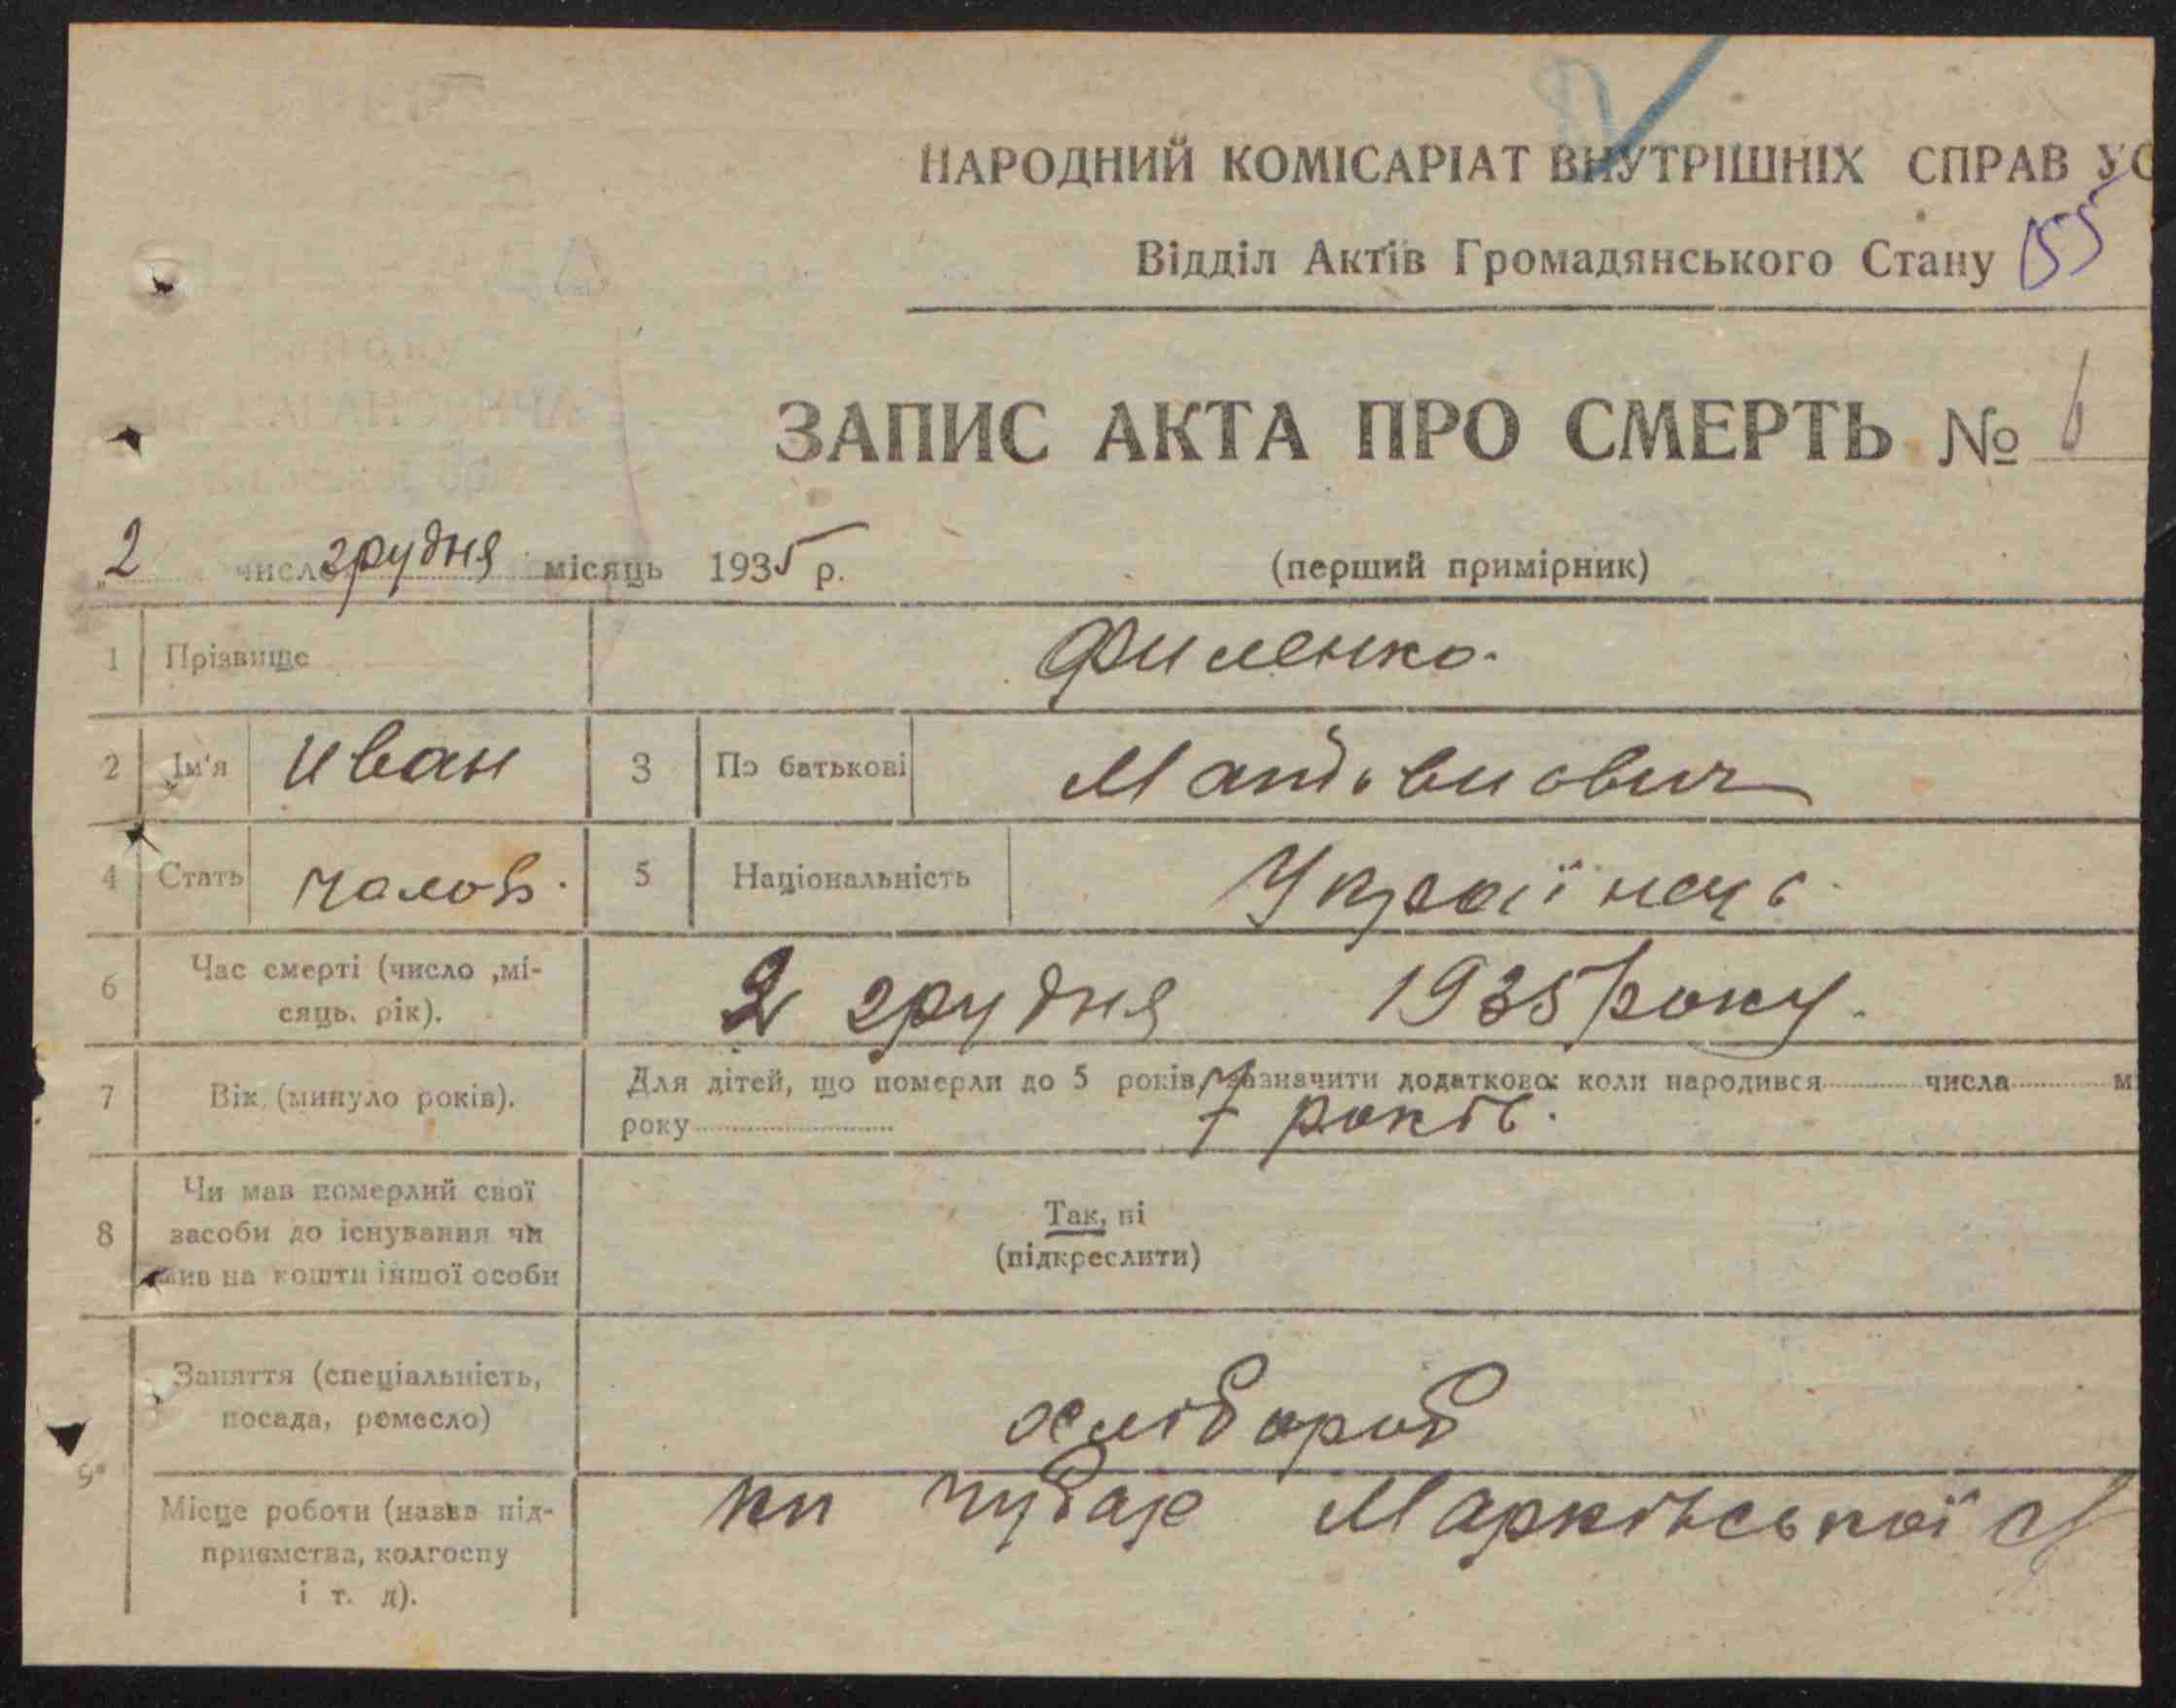 НАРОДНИЙ КОМІСАРІАТ ВНУТРІШНІХ СПРАВ УС
Відділ Актів Громадянського Стану 155
ЗАПИС АКТА ПРО СМЕРТЬ № 6
2 число грудня місяць 1935 р. (перший примірник)
1 Прізвище Филенко.
2 Ім'я Иван 3 По батькові
4 Стать чолов. 5 Національність Українець.
6 Час смерті (число ,мі-
сяць, рік). 2 грудня 1935 року.
7 Вік (минуло років). Для дітей, що померли до 5 років, зазначити додатково: коли народився числа м
року 7 років.
8 Чи мав померлий свої
засоби до існування чи
жив на кошти іншої особи
Так, ні
(підкреслити)
9 Заняття (спеціальність,
посада, ремесло) хлібороб
Місце роботи (назва під-
приємства, колгоспу
і т. д).
Марківської